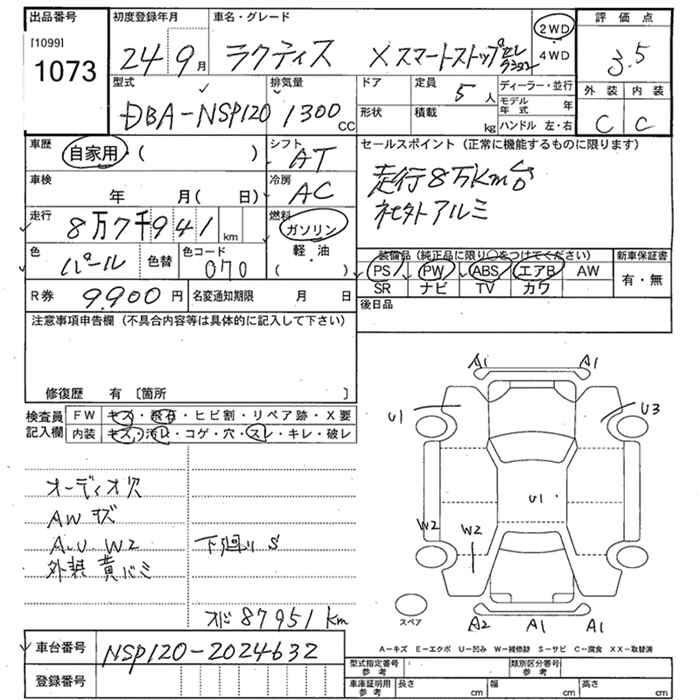 出品番号 初度登録年月 車名・グレード 評価点
[1099] 1073 24年 9月 ラクティス Xスマートストップセレクション 2WD 4WD 3.5
型式 排気量 ドア 定員 5人 ディーラー・並行 外装 内装
DBA-NSP120 1300CC 形状 積載 kg モデル年式 年 C C
ハンドル 左・右
車歴 自家用・( ) シフト AT セールスポイント(正常に機能するものに限ります)
車検 年 月( 日) 冷房 AC 走行8万Km台
走行 8万7千941km 燃料 ガソリン 軽・油 ( ) 社外アルミ
色 パール 色替 色コード 070 装備品(純正品に限り○をつけてください) 新車保証書
PS PW ABS エアB AW 有・無
R券 9900円 名変通知期限 月 日 SR ナビ TV カワ
注意事項申告欄(不具合内容等は具体的に記入して下さい) 後日品
修復歴 有 〔箇所 〕
検査員記入欄 FW キズ・飛石・ヒビ割・リペア跡・X要
内装 キズ・汚レ・コゲ・穴・スレ・キレ・破レ
A1 A1
U1 U3
U1
W2 W2
オーディオ穴
AWキズ
A.U.W2 下廻りS
外装黄バミ
オド87951km
スペア A2 A1 A1
A−キズ E−エクボ U−凹み W−補修跡 S−サビ C−腐食 XX−取替済
車台番号 NSP120-2024632
登録番号
型式指定番号 参考 類別区分番号 参考
車庫証明用 参考 長さ cm 幅 cm 高さ cm